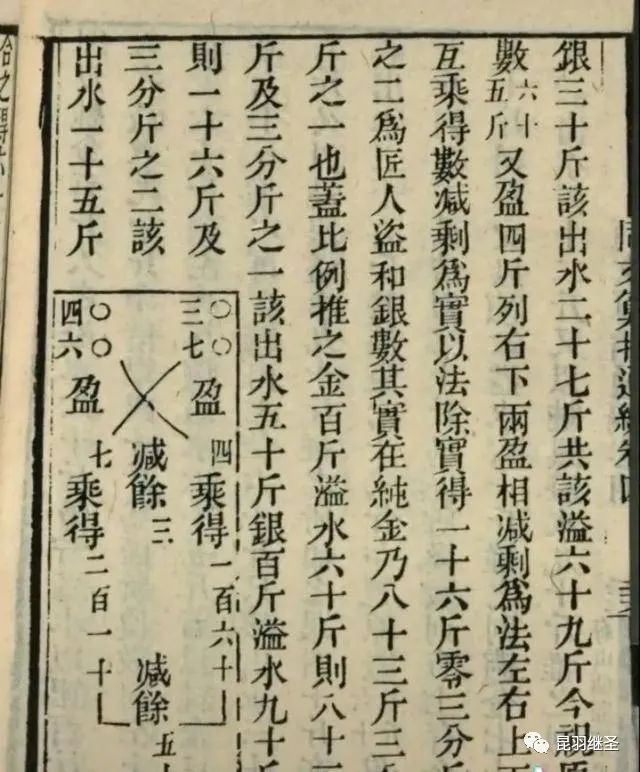 同文算指通編卷四
銀三十斤該出水二十七斤共該溢六十九斤今
數六十五斤又盈四斤列右下兩盈相減剩爲法左右上
互乘得數減剩爲實以法除實得一十六斤零三分斤
之二爲匠人盜和銀數其實在純金乃八十三斤三
斤之一也蓋比例推之金百斤溢水六十斤則八十三
斤及三分斤之一該出水五十斤銀百斤溢水九十斤
則一十六斤及
三分斤之二該
出水一十五斤
〇〇
三七 盈 四 乘得 一百六十
減餘 三 減餘 五十
〇〇
四六 盈 七 乘得 二百一十
昆羽继圣